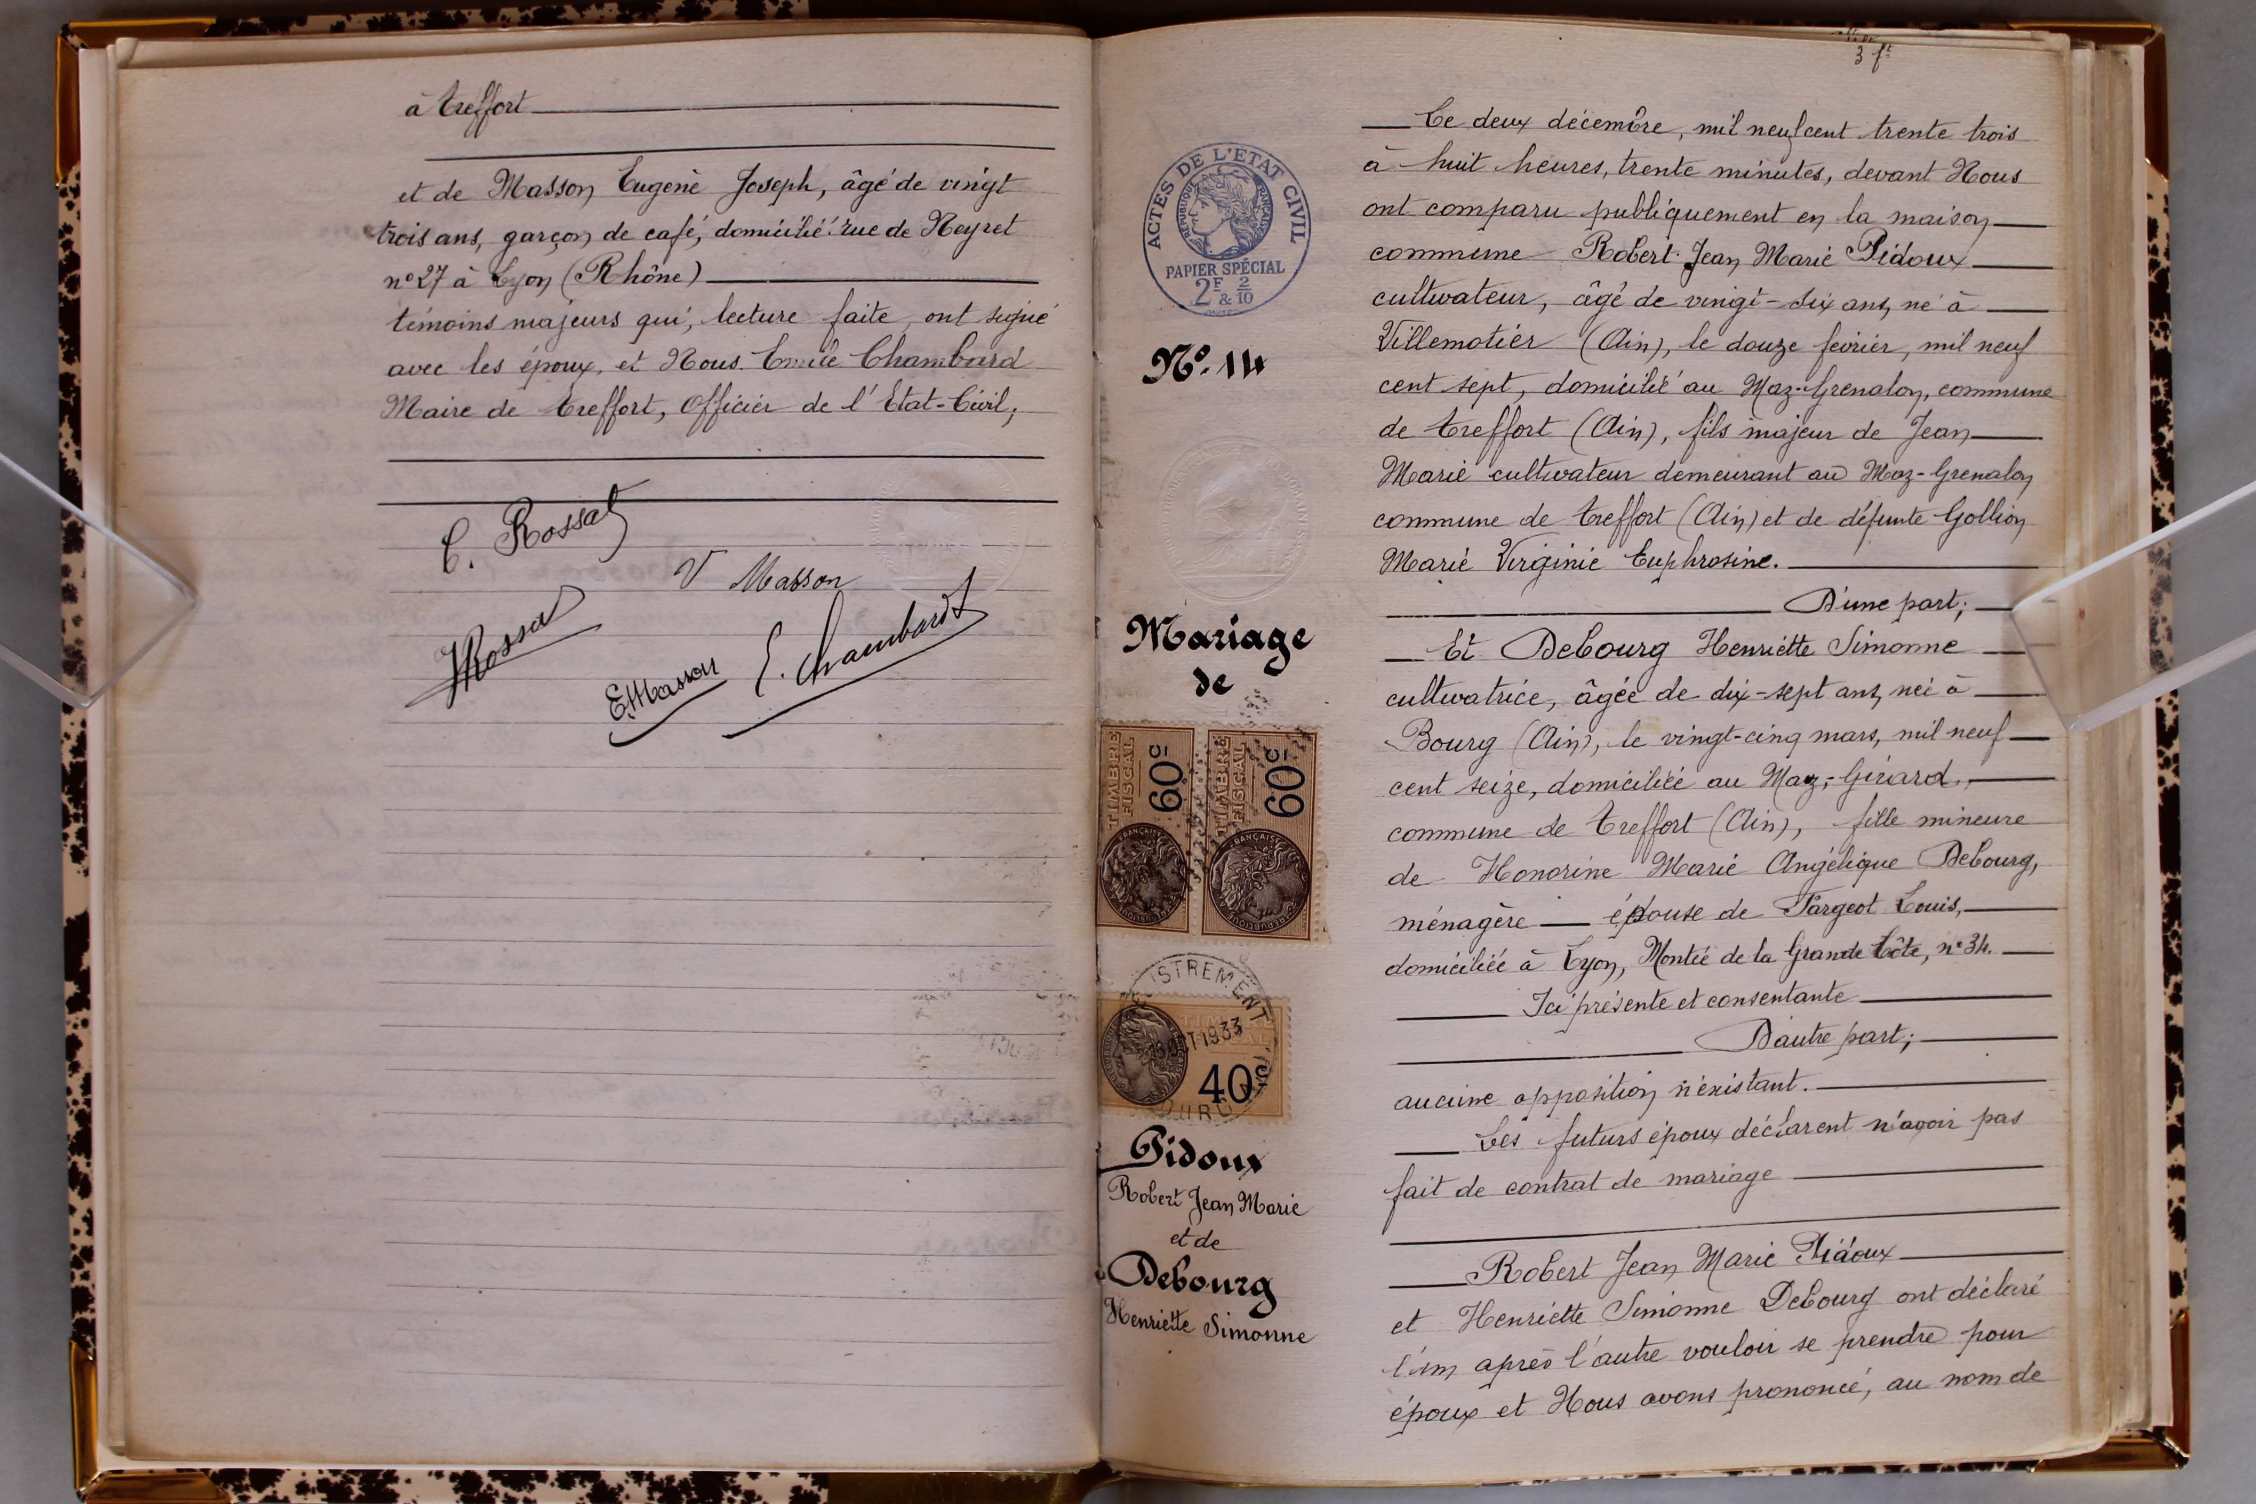 à Treffort
et de Masson Eugène Joseph, âgé de vingt
trois ans, garçon de café, domicilié rue de Neyret
n° 27 à Lyon (Rhône)
témoins majeurs qui, lecture faite, ont signé
avec les époux, et Nous Emile Chambard
Maire de Treffort, Officier de l'Etat-Civil,
C. Rossat
V Masson
E. Masson
E. Chambard
3 ft
ACTES DE L'ETAT CIVIL
REPUBLIQUE FRANÇAISE
PAPIER SPÉCIAL
2F & 2/10
N° 14
Mariage
de
TIMBRE FISCAL 60c
TIMBRE FISCAL 60c
OCT 1933
40c
Pidoux
Robert Jean Marie
et de
Debourg
Henriette Simonne
Le deux décembre, mil neuf cent trente trois
à huit heures, trente minutes, devant Nous
ont comparu publiquement en la maison
commune Robert Jean Marie Pidoux
cultivateur, âgé de vingt-six ans, né à
Villemotier (Ain), le douze février, mil neuf
cent sept, domicilié au Maz-Grenalon, commune
de Treffort (Ain), fils majeur de Jean
Marie cultivateur demeurant au Maz-Grenalon
commune de Treffort (Ain) et de défunte Gollion
Marie Virginie Euphrosine.
D'une part;
Et Debourg Henriette Simonne
cultivatrice, âgée de dix-sept ans, née à
Bourg (Ain), le vingt-cinq mars, mil neuf
cent seize, domiciliée au Maz-Girard,
commune de Treffort (Ain), fille mineure
de Honorine Marie Angélique Debourg,
ménagère épouse de Fargeot Louis,
domiciliée à Lyon, Montée de la Grande Côte, n° 34.
Ici présente et consentante
D'autre part;
aucune opposition n'existant.
Les futurs époux déclarent n'avoir pas
fait de contrat de mariage
Robert Jean Marie Pidoux
et Henriette Simonne Debourg ont déclaré
l'un après l'autre vouloir se prendre pour
époux et Nous avons prononcé, au nom de